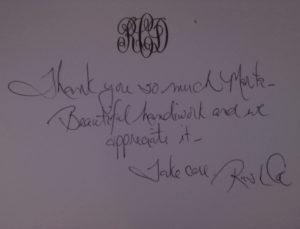 RCD
Thank you so much
Beautiful handiwork and we
appreciate it-
Take care